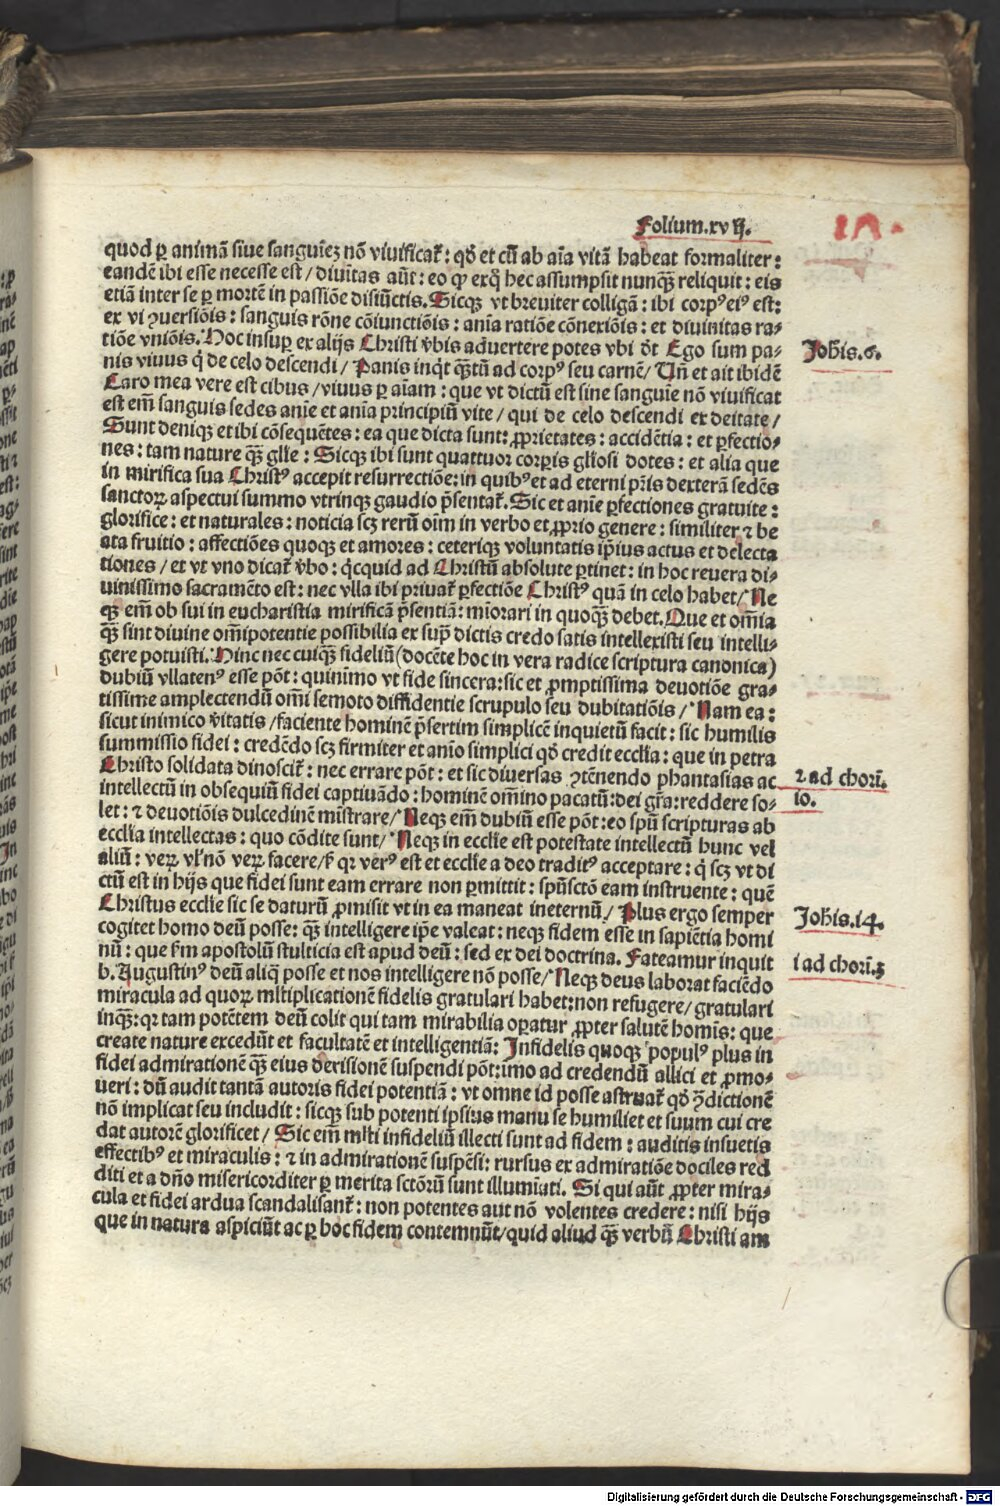 Folium.xvij.
quod ꝑ animã siue sanguinez nõ viuificat᷑: qđ et cũ ab aĩa vitã habeat formaliter:
eandẽ ibi esse necesse est/ diuinitas aũt: eo ꝙ exq̃ hec assumpsit nunqꝫ reliquit: eis
etiã inter se ꝑ mortẽ in passiõe disiũctis. Sicqꝫ vt breuiter colligã: ibi corpꝰ eiꝰ est:
ex vi ꝯuersiõis: sanguis rõne cõiunctiõis: anĩa ratiõe cõnexiõis: et diuinitas ra-
tiõe vniõis. Hoc insuꝑ ex alijs Christi v̄bis aduertere potes vbi dr̄t Ego sum pa-
nis viuus q̇ de celo descendi/ Panis inq̇t qꝫtũ ad corpꝰ seu carnẽ/ Vñ et ait ibidẽ
Johis.6.
Caro mea vere est cibus/ viuus ꝑ aĩam: que vt dictũ est sine sanguĩe nõ viuificat
est em̃ sanguis sedes anĩe et anĩa principiũ vite/ qui de celo descendi ex deitate/
Sunt deniqꝫ et ibi cõsequẽtes: ea que dicta sunt: ꝓprietates: accidẽtia: et ꝑfectio-
nes: tam nature qꝫ glĩe: Sicqꝫ ibi sunt quattuor corpĩs glĩosi dotes: et alia que
in mirifica sua Christꝰ accepit resurrectiõe: in quibꝰ et ad eterni pr̃is dexterã sedẽs
sanctoꝝ aspectui summo vtrinqꝫ gaudio p̃sentat᷑. Sic et anĩe ꝑfectiones gratuite:
glorifice: et naturales: noticia scꝫ rerũ oĩm in verbo et ꝓprio genere: similiter ⁊ be
ata fruitio: affectiões quoqꝫ et amores: ceteriqꝫ voluntatis ip̃ius actus et delecta
tiones/ et vt vno dicat᷑ v̄bo: q̇cquid ad Christũ absolute ꝑtinet: in hoc reuera di-
uinissimo sacramẽto est: nec vlla ibi priuat᷑ ꝑfectiõe Christꝰ quã in celo habet/ Ne
qꝫ em̃ ob sui in eucharistia mirificã p̃sentiã: mĩorari in quoqꝫ debet. Que et om̃ia
qꝫ sint diuine om̃ipotentie possibilia ex sup̃ dictis credo satis intellexisti seu intelli-
gere potuisti. Hinc nec cuiqꝫ fideliũ (docẽte hoc in vera radice scriptura canonica)
dubiũ vllatenꝰ esse põt: quinimo vt fide sincera: sic et ꝓmptissima deuotiõe gra-
tissime amplectendũ om̃i semoto diffidentie scrupulo seu dubitatiõis/ Nam ea:
sicut inimico v̄itatis/ faciente hominẽ p̃sertim simplicẽ inquietũ facit: sic humilis
summissio fidei: credẽdo scꝫ firmiter et anĩo simplici qđ credit ecclĩa: que in petra
Christo solidata dinoscit᷑: nec errare põt: et sic diuersas ꝯtẽnendo phantasias ac
⁊ ad choriñ.
intellectũ in obsequiũ fidei captiuãdo: hominẽ om̃ino pacatũ: dei gr̃a: reddere so-
10.
let: ⁊ deuotiõis dulcedinẽ mĩstrare/ Neqꝫ em̃ dubiũ esse põt: eo spũ scripturas ab
ecclĩa intellectas: quo cõdite sunt/ Neqꝫ in ecclĩe est potestate intellectũ hunc vel
aliũ: veꝝ vl̃ nõ veꝝ facere/ sꝫ qr̃ verꝰ est et ecclĩe a deo traditꝰ acceptare: q̇ scꝫ vt di
ctũ est in hijs que fidei sunt eam errare non ꝑmittit: spũsctõ eam instruente: quẽ
Christus ecclĩe sic se daturũ ꝓmisit vt in ea maneat ineternũ/ Plus ergo semper
Johis.14.
cogitet homo deũ posse: qꝫ intelligere ip̃e valeat: neqꝫ fidem esse in sapiẽtia homi
nũ: que ẜm apostolũ stulticia est apud deũ: sed ex dei doctrina. Fateamur inquit
1 ad choriñ.3
b. Augustinꝰ deũ aliq̇ posse et nos intelligere nõ posse/ Neqꝫ deus laborat faciẽdo
miracula ad quoꝝ ml̃tiplicationẽ fidelis gratulari habet: non refugere/ gratulari
inqꝫ: qr̃ tam potẽtem deũ colit qui tam mirabilia oꝑatur ꝓpter salutẽ homĩs: que
create nature excedũt et facultatẽ et intelligentiã: Infidelis quoqꝫ populꝰ plus in
fidei admirationẽ qꝫ eius derisionẽ suspendi põt: imo ad credendũ allici et ꝓmo-
ueri: dũ audit tantã autoris fidei potentiã: vt omne id posse astruat᷑ qđ ꝯdictionẽ
nõ implicat seu includit: sicqꝫ sub potenti ipsius manu se humiliet et suum cui cre
dat autorẽ glorificet/ Sic em̃ ml̃ti infideliũ illecti sunt ad fidem: auditis insuetis
effectibꝰ et miraculis: ⁊ in admirationẽ suspẽsi: rursus ex admiratiõe dociles red
diti et a dño misericorditer ꝑ merita sctõrũ sunt illumĩati. Si qui aũt ꝓpter mira-
cula et fidei ardua scandalisant᷑: non potentes aut nõ volentes credere: nisi hijs
que in natura aspiciũt ac ꝑ hoc fidem contemnũt/ quid aliud qꝫ verbũ Christi am
Digitalisierung gefördert durch die Deutsche Forschungsgemeinschaft - DFG